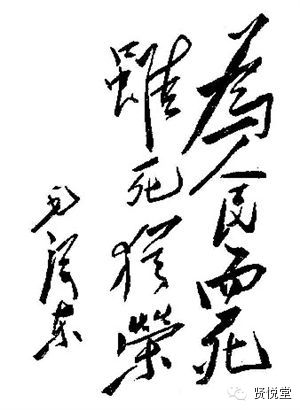 為人民而死
雖死猶榮
毛澤东
贤悦堂